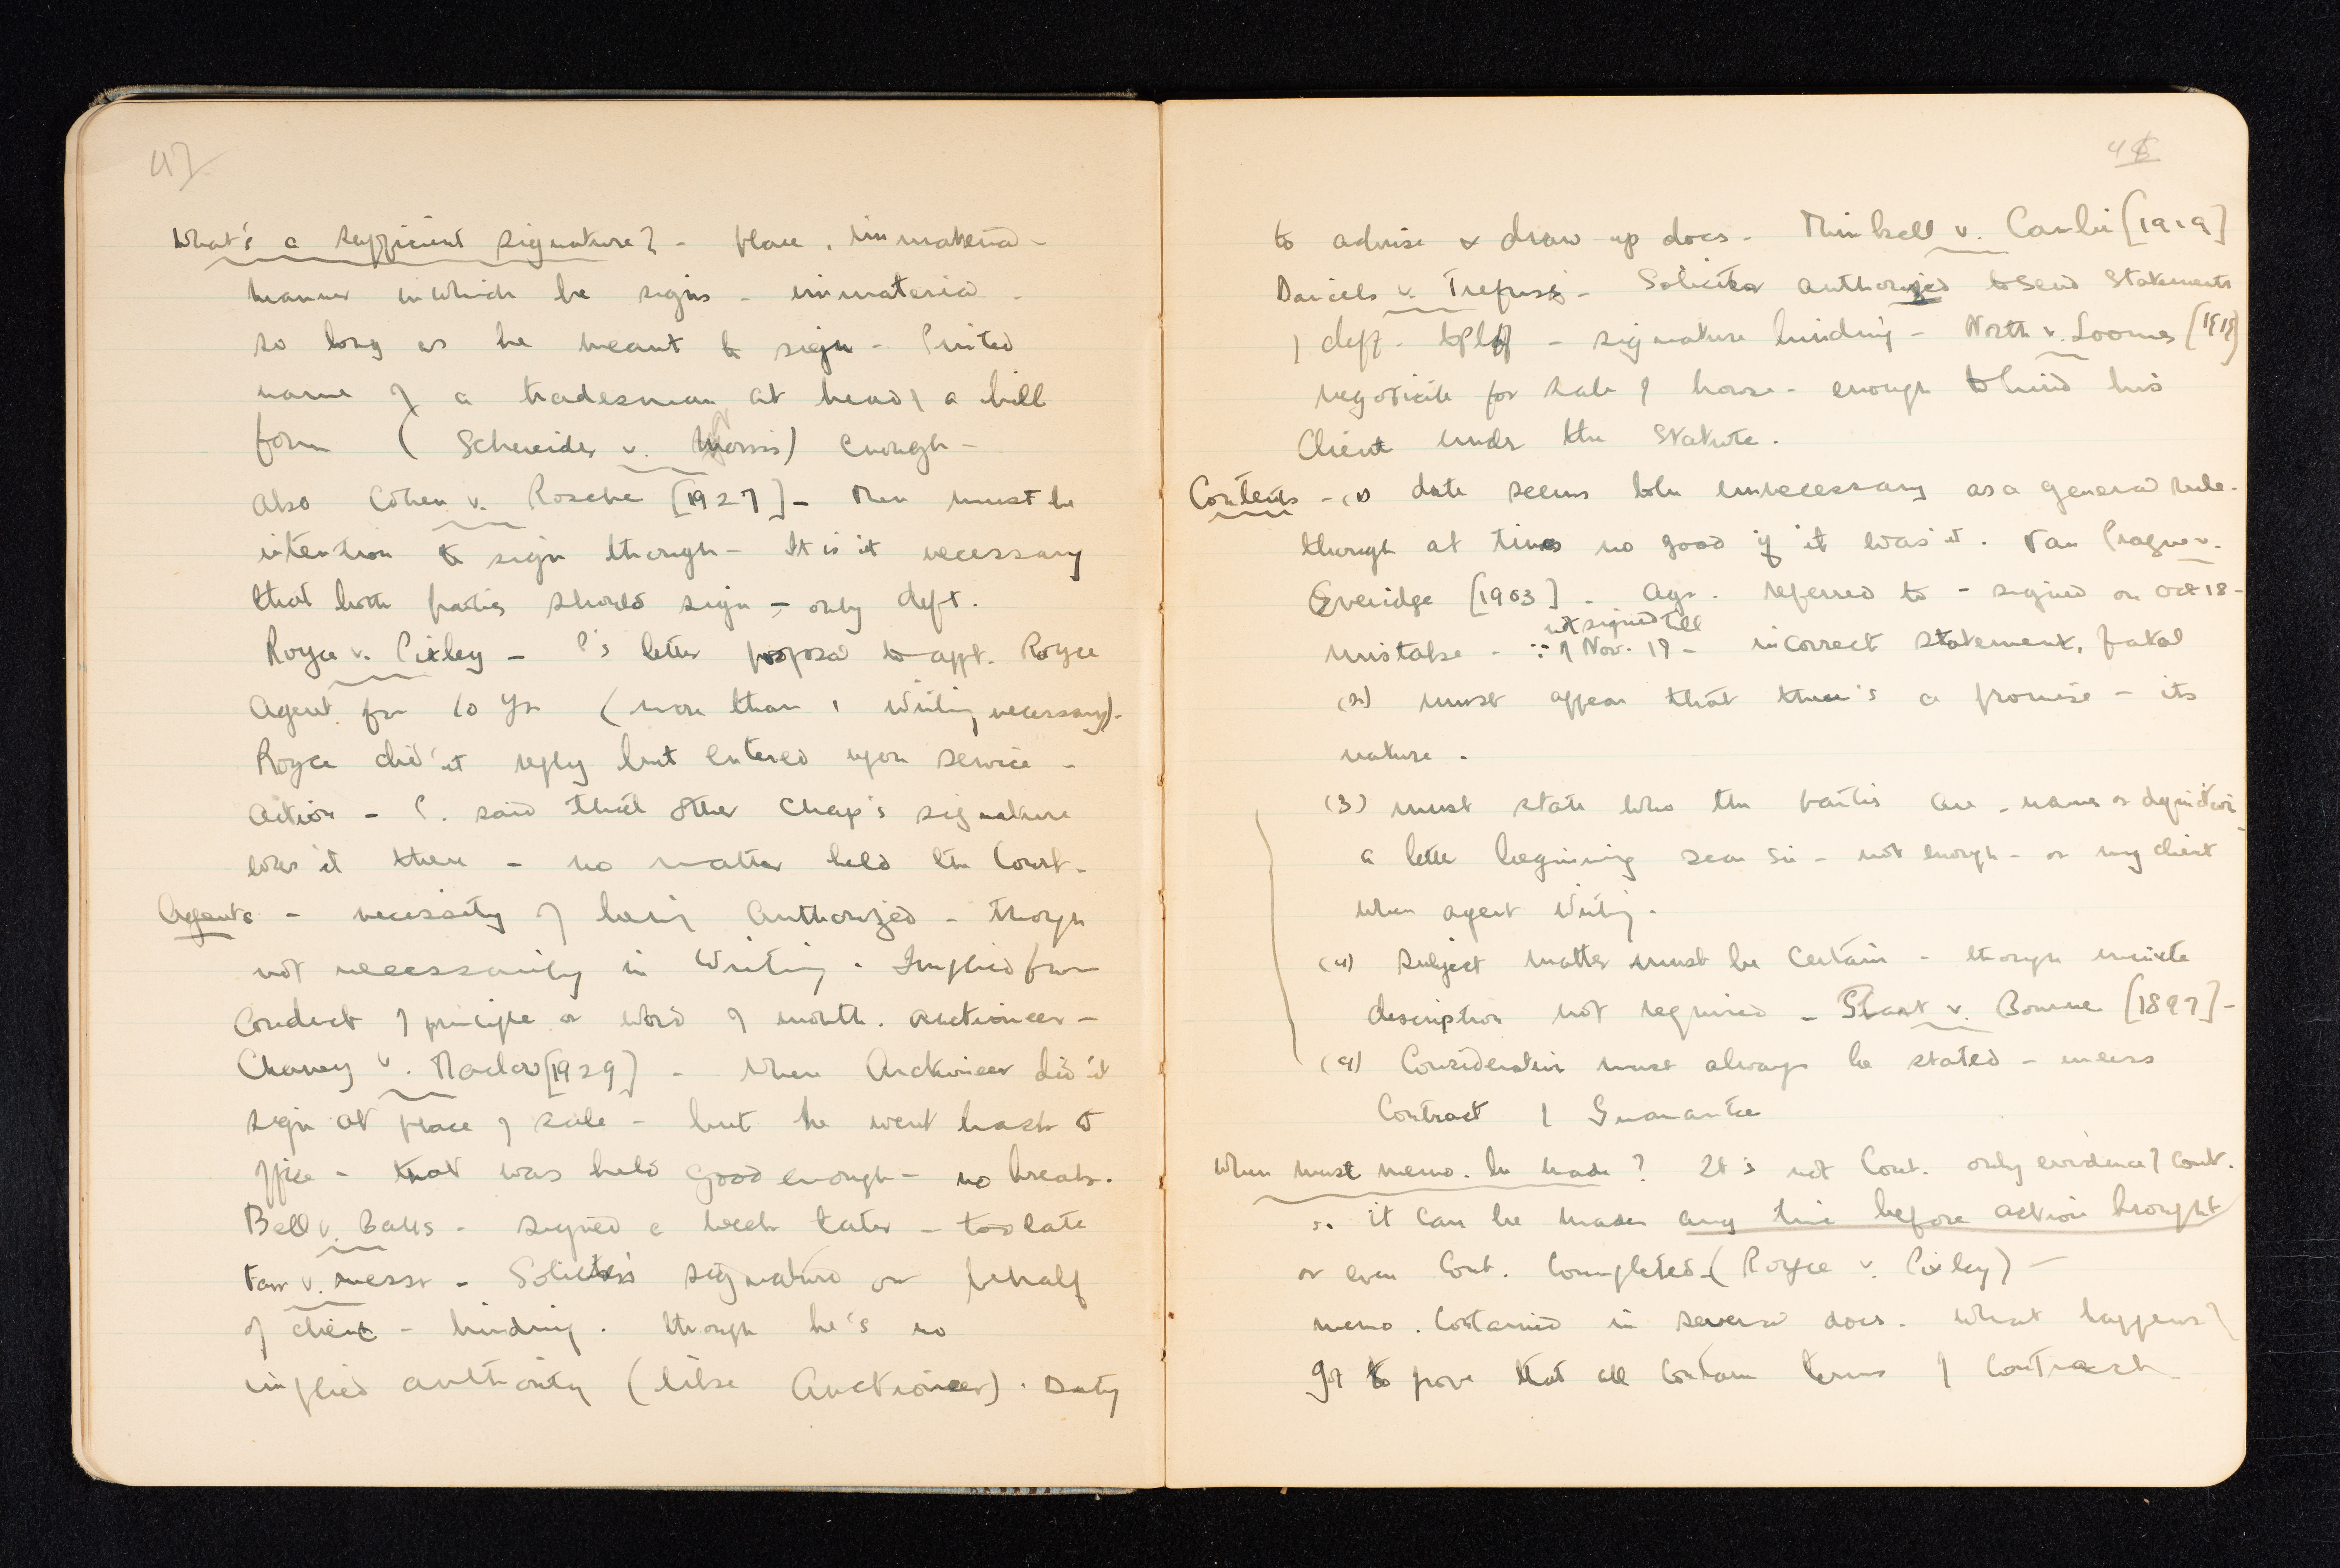 47
What's a sufficient signature? - place, immaterial -
manner in which he signs - immaterial -
so long as he meant to sign - Printed
name of a tradesman at head of a bill
form (Schneider v. Norris) enough -
also Cohen v. Roche [1927] - then must be
intention to sign though - It is'nt necessary
that both parties should sign - only deft.
Royce v. Pixley - P's letter proposal to appt. Royce
Agent for 10 yrs (more than 1 writing necessary) -
Royce did'nt reply but entered upon service -
action - P. said that other Chap's signature
was'nt there - no matter held the Court -
Agents - necessity of being Authorized - though
not necessarily in writing. Implied from
Conduct of principle or word of mouth. auctioneer -
Chaney v. Maclow [1929] - when Auctioneer did'nt
sign at place of sale - but he went back to
office - that was held good enough - no break.
Bell v. Balls - signed a week later - too late
- Solicitor's signature on behalf
of client - binding. though he's no
implied authority (like Auctioneer). Duty
48
to advise & draw up docs - v. [1919]
Daniels v. Trefusis - Solicitor authorized to send Statements
of deft. to Pltff - signature binding - North v. Loomes [1919]
negotiate for sale of house - enough to bind his
Client under the Statute.
Contents - (1) date seems to be unnecessary as a general rule -
though at times no good if it was'nt. Van Praagh v.
Everidge [1903] - Agr. referred to - signed on Oct 18 -
not signed till
mistake - ∵ Nov. 19 - incorrect statement, fatal
(2) must appear that there's a promise - its
nature.
(3) must state who the parties are - name or definition
a letter beginning dear Sir - not enough - or my client
when agent writing.
(4) subject matter must be certain - though minute
description not required - Plant v. Bourne [1897] -
(4) Consideration must always be stated - unless
Contract of Guarantee
When must memo. be made? It's not Cont. only evidence of cont.
∴ it can be made any time before action brought
or even Cont. Completed - (Royce v. Pixley) -
memo. Contained in several docs. What happens?
got to prove that all contain terms of contract